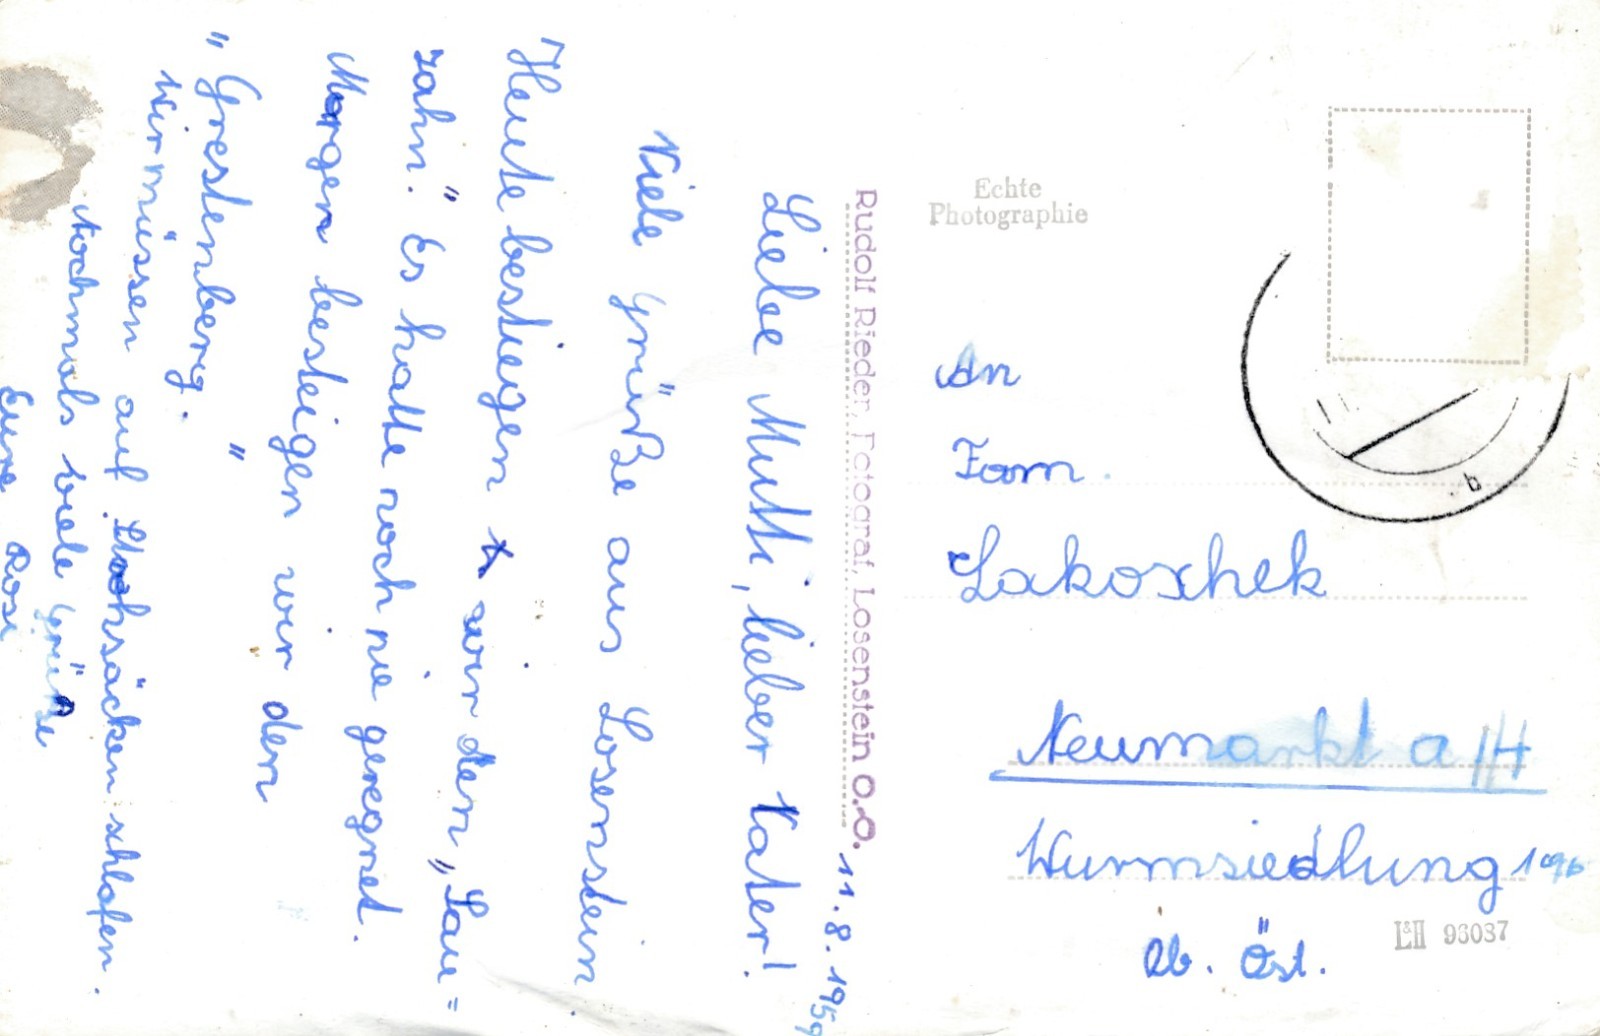 11.8.1959
Liebe Mutti, lieber Vater!
Viele Grüße aus Losenstein
Heute bestiegen wir den „Sau=
zahn." Es hatte noch nie geregnet.
Morgen besteigen wir den
"Grestenberg."
Wir müssen auf Strohsäcken schlafen.
Nochmals viele Grüße
Eure Rosi
Rudolf Rieder, Fotograf, Losenstein O.-Ö.
Echte
Photographie
An
Fam.
Lakoschek
Neumarkt a/H
Wurmsiedlung
Ob. Öst.
L&H 96037
b